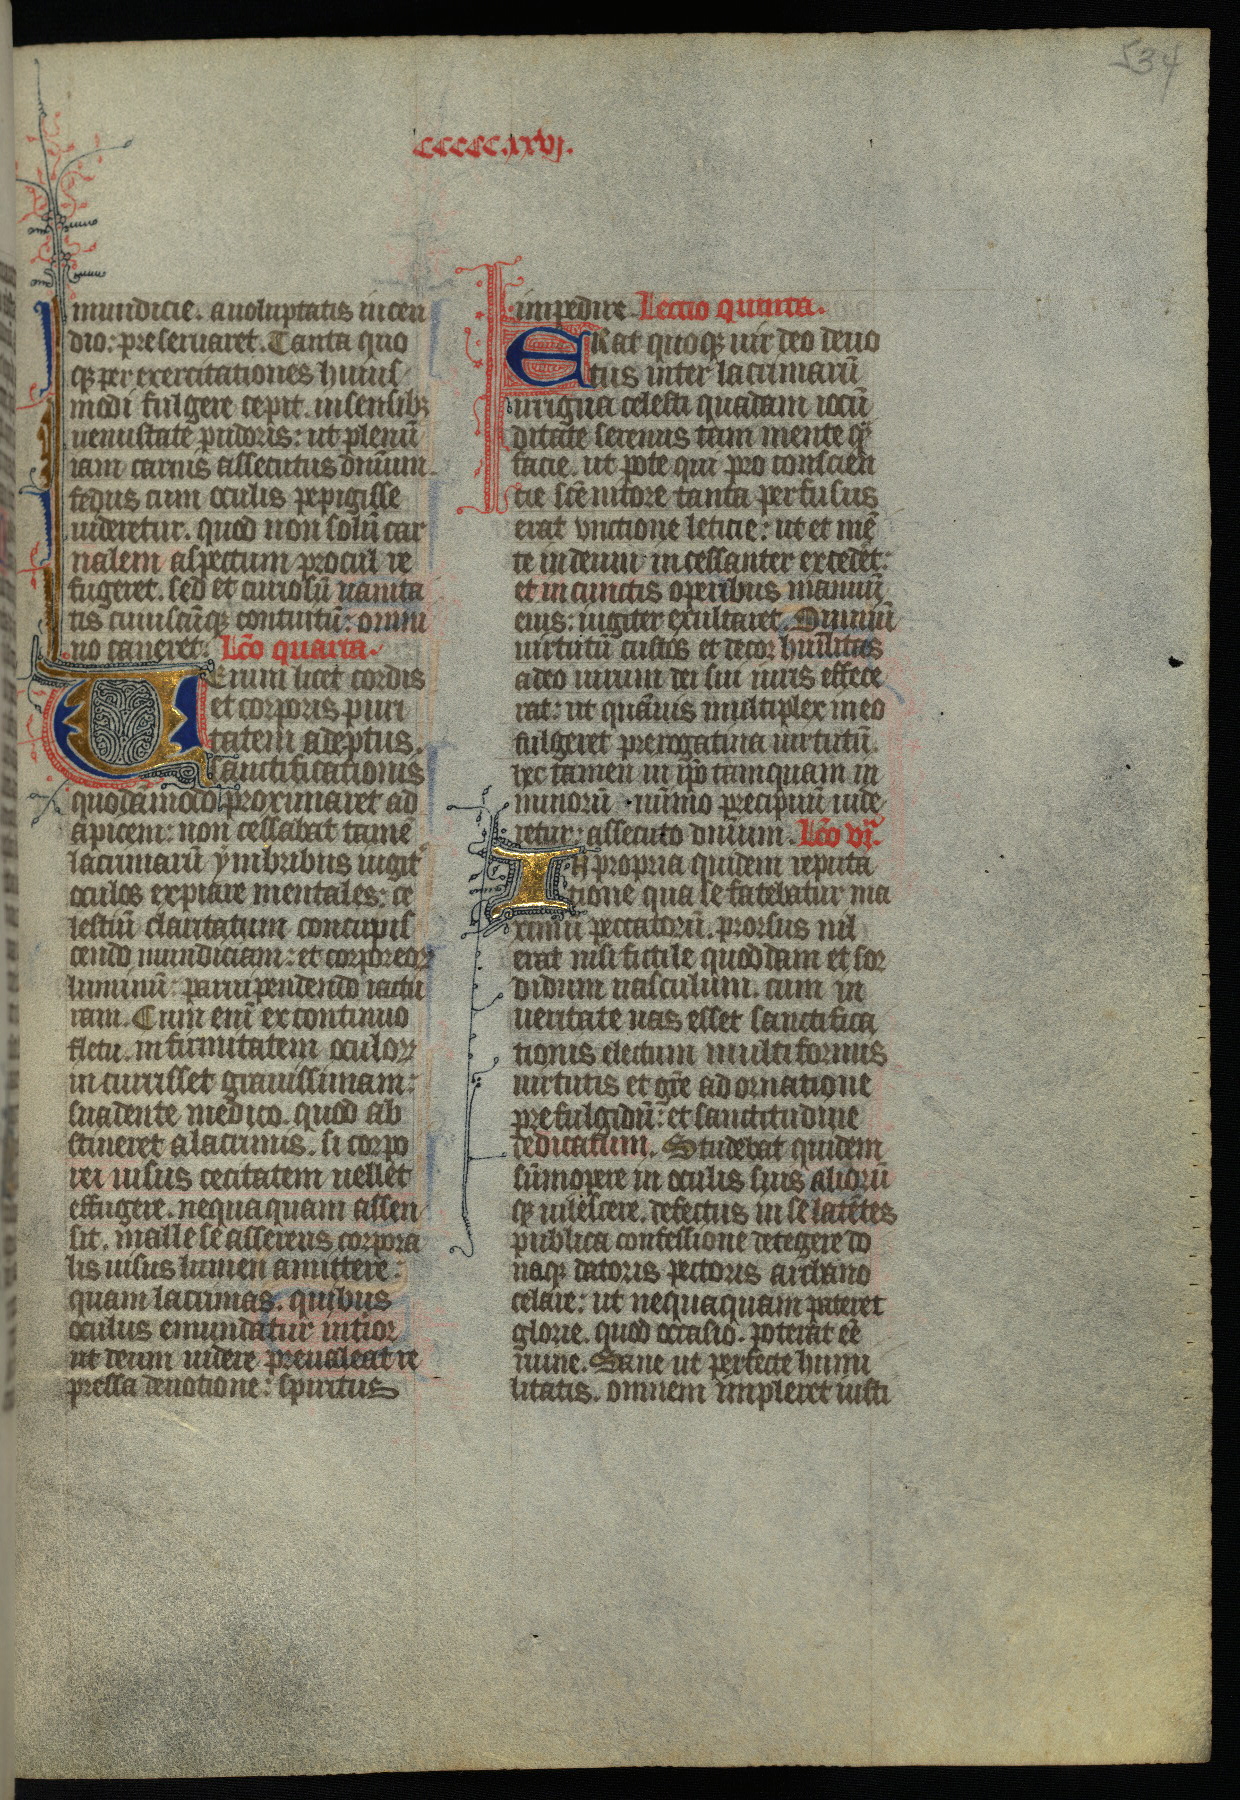 534
CCCCC.xxvj.
mundicie. a uoluptatis incen
dio: preseruaret. Tanta quo
q̨ per exercitationes huius
modi fulgere cepit. insensibꝫ
uenustate pudoris: ut plenũ
iam carnis assecutus dñium
fedus cum oculis pepigisse
uideretur. quod non solũ car
nalem aspectum procul re
fugeret. sed et curiosũ uanita
tis cuiuscũq̨ contuitũ: omni
no caueret. Lc̃o quarta.
Uerum licet cordis
et corporis puri
tatem adeptus.
sanctificationis
quodãmodo proximaret ad
apicem: non cessabat tamẽ
lacrimarũ ymbribus iugit᷒
oculos expiare mentales: ce
lestiũ claritatum concupis
cendo mundiciam: et corporeoꝝ
luminũ: paruipendendo iactu
ram. Cum enĩ ex continuo
fletu. infirmitatem oculoꝝ
incurrisset grauissimam:
suadente medico. quod ab
stineret a lacrimis. si corpo
rei uisus cecitatem uellet
effugere. nequaquam assen
sit. malle se asserens corpora
lis uisus lumen amittere:
quam lacrimas. quibus
oculus emundatur intior
ut deum uidere preualeat re
pressa deuotione: spiritus
impedire. Lectio quinta.
ERat quoq̨ uir deo deuo
tus inter lacrimarũ
irrigua celesti quadam iocũ
ditate serenus tam mente q̃
facie. ut pote qui pro conscien
tie scẽ nitore tanta perfusus
erat vnctione leticie: ut et mẽ
te in deum incessanter excedẽt:
et in cunctis operibus manuũ
eius: iugiter exultaret. Omniũ
uirtutũ custos et decor humĩlitas
adeo uirum dei sui iuris effece
rat: ut quãuis multiplex in eo
fulgeret prerogatiua uirtutũ.
hec tamen in ip̃o tamquam in
minorũ. minĩmo precipuũ uide
retur: assecuto dñium. Lc̃o vj.
IN propria quidem reputa
tione qua se fatebatur ma
ximũ peccatorũ. prorsus nil
erat nisi fictile quoddam et sor
didum uasculum. cum in
ueritate uas esset sanctifica
tionis electum multiformis
uirtutis et gr̃e adornatione
prefulgidũ: et sanctitudine
dedicatum. Studebat quidem
sũmopere in oculis suis aliorũ
q̨ uilescere. defectus in se latẽtes
publica confessione detegere do
naq̨ datoris pectoris archano
celare: ut nequaquam pateret
glorie. quod occasio. poterat eẽ
ruine. Sane ut perfecte humi
litatis. omnem impleret iusti